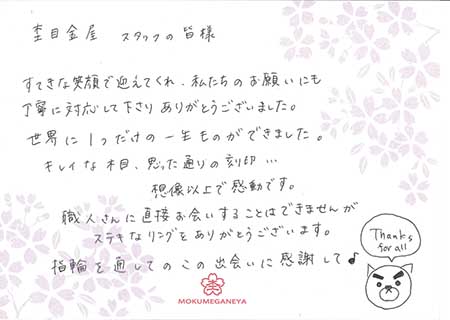 杢目金屋 スタッフの皆様
すてきな笑顔で迎えてくれ、私たちのお願いにも
丁寧に対応して下さりありがとうございました。
世界に1つだけの一生ものができました。
キレイな木目、思った通りの刻印…
想像以上で感動です。
職人さんに直接お会いすることはできませんが
ステキなリングをありがとうございます。
指輪を通してのこの出会いに感謝して♪
Thanks
for all
MOKUMEGANEYA